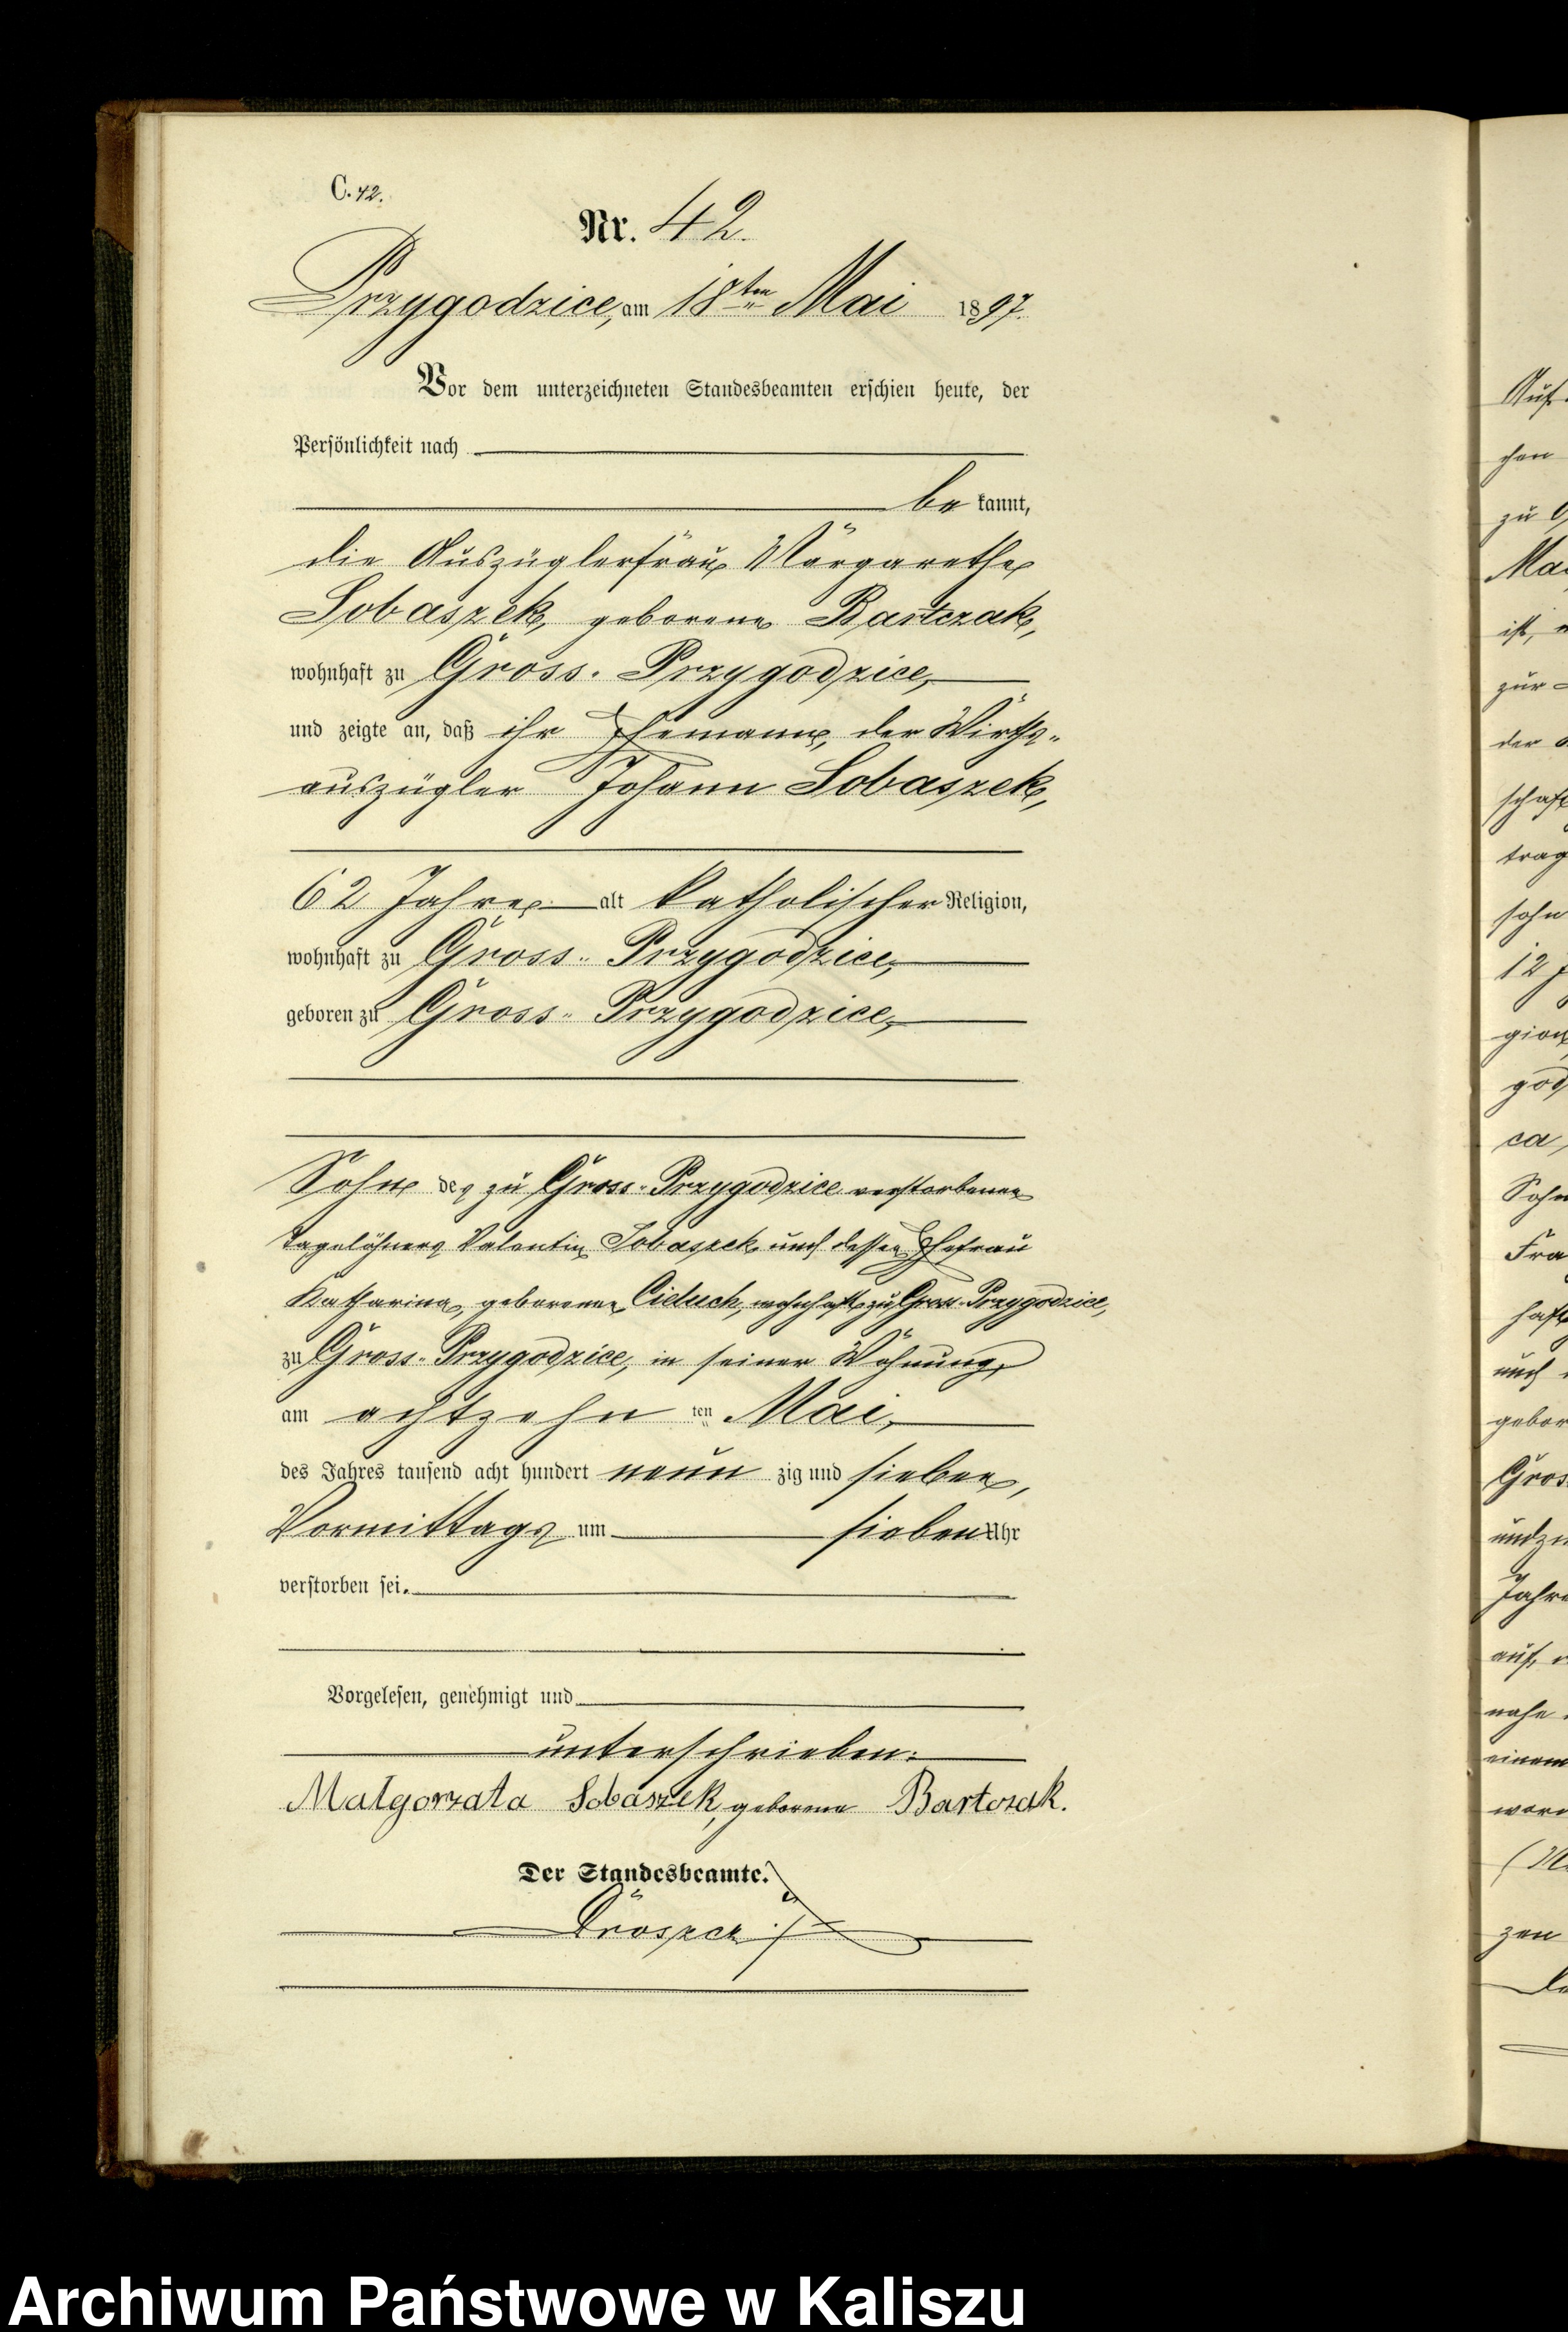 C. 42.
Nr. 42.
Przygodzice, am 18ten Mai 1897.
Vor dem unterzeichneten Standesbeamten erschien heute, der
Persönlichkeit nach
be kannt,
die Auszüglerfrau Margarethe
Sobaszek, geborene Bartczak,
wohnhaft zu Gross-Przygodzice,
und zeigte an, daß ihr Ehemann, der Wirths-
auszügler Johann Sobaszek,
62 Jahre alt katholischer Religion,
wohnhaft zu Gross-Przygodzice,
geboren zu Gross-Przygodzice,
Sohn des zu Gross-Przygodzice verstorbenen
Tagelöhners Valentin Sobaszek und dessen Ehefrau
Katharina, geborenen Cieluch, wohnhaft zu Gross-Przygodzice,
zu Gross-Przygodzice, in seiner Wohnung,
am achtzehn ten Mai,
des Jahres tausend acht hundert neun zig und sieben,
Vormittags um sieben Uhr
verstorben sei.
Vorgelesen, genehmigt und
unterschrieben:
Małgorzata Sobaszek, geborene Bartczak.
Der Standesbeamte.
Auf
chen
zu
Ma
ist,
zur
der
schaft
trag
sohn
12
gion
god
ca,
Sohn
Fra
haft
und
gebor
Gros
undzw
Jahre
auf
nahe
einem
word
zen
Archiwum Państwowe w Kaliszu